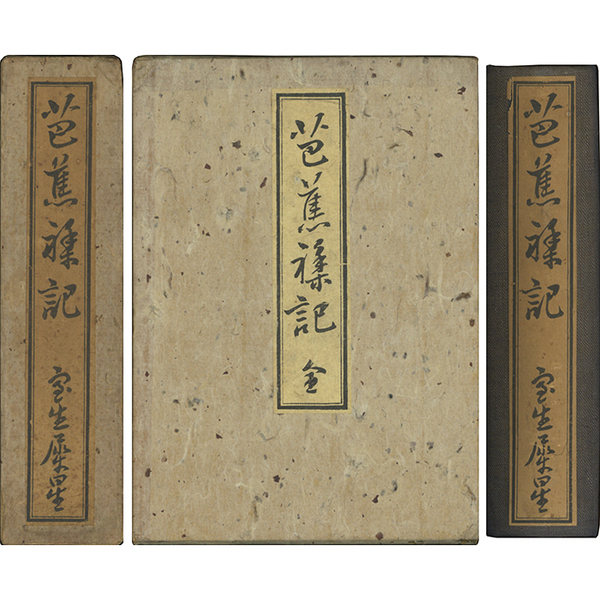 芭蕉襍記 室生犀星
芭蕉襍記 全
芭蕉襍記 室生犀星